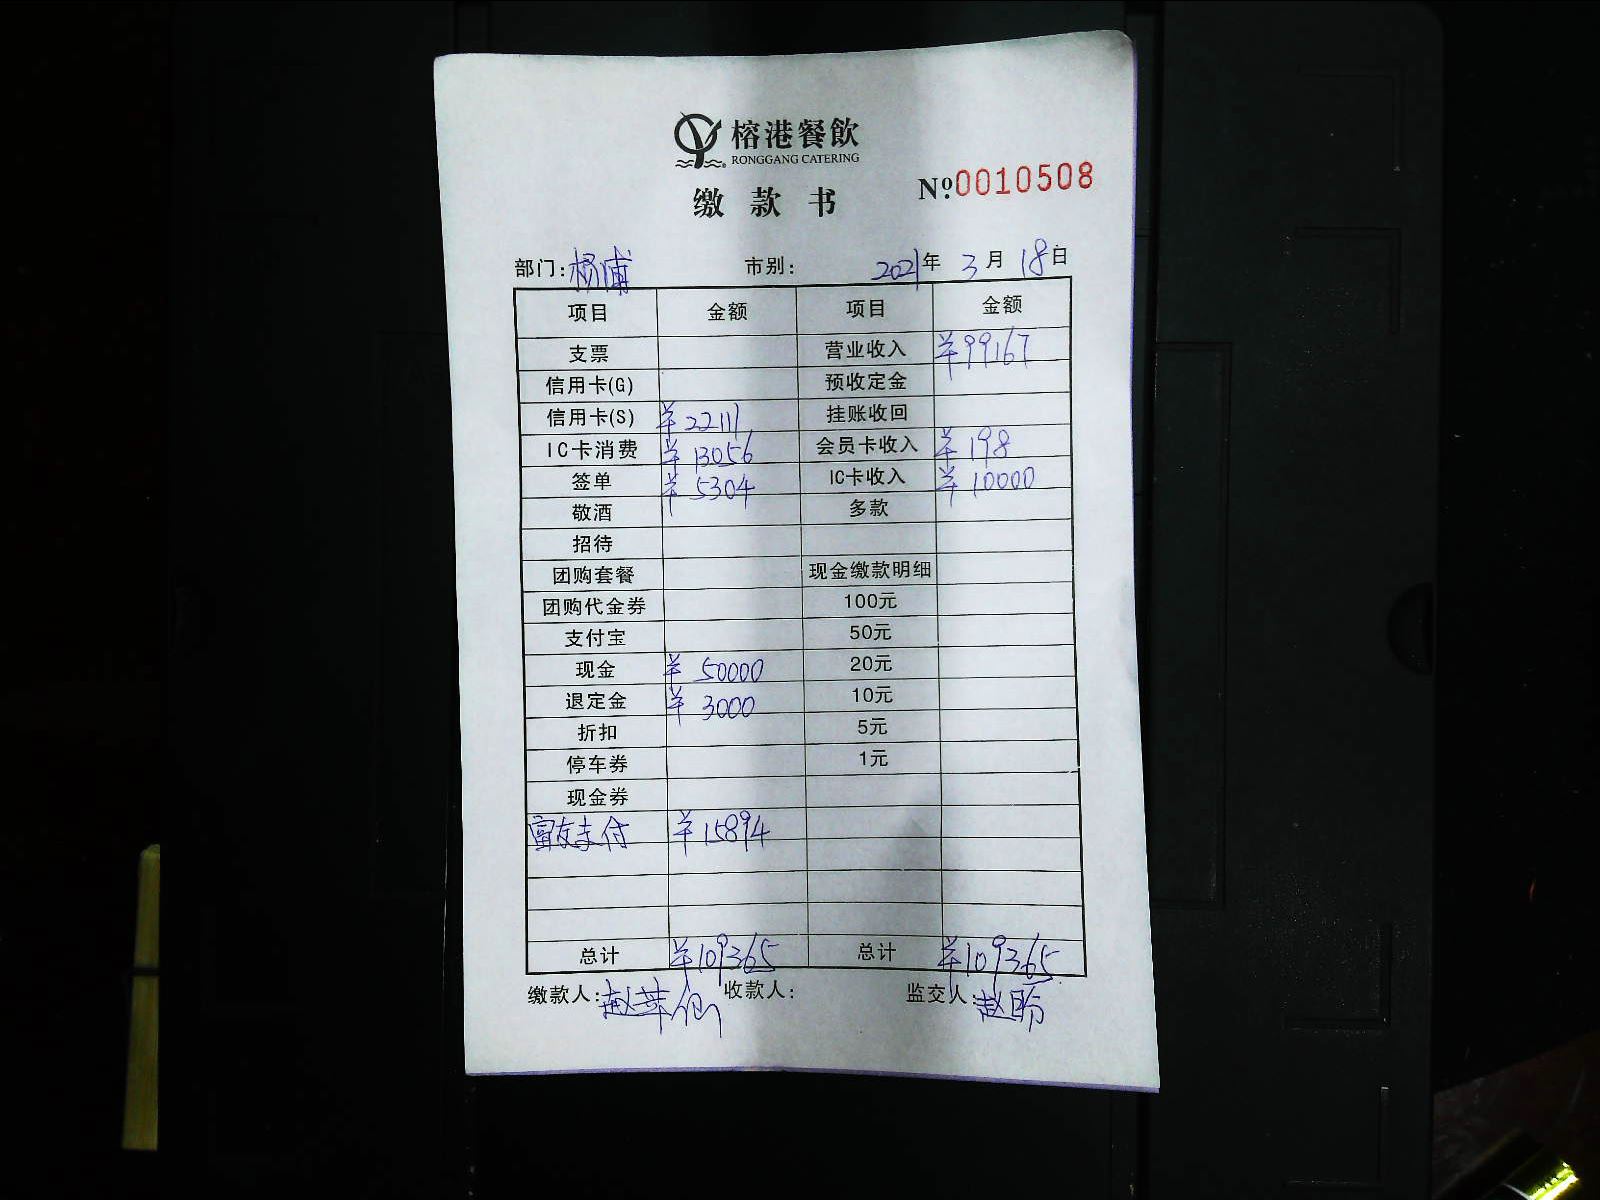 榕港餐飲
RONGGANG CATERING
缴款书 Nº.0010508
部门:杨浦 市别: 2021年3月18日
项目 金额 项目 金额
支票 营业收入 ¥99167
信用卡(G) 预收定金
信用卡(S) ¥22111 挂账收回
IC卡消费 ¥13056 会员卡收入 ¥198
签单 ¥5304 IC卡收入 ¥10000
敬酒 多款
招待
团购套餐 现金缴款明细
团购代金券 100元
支付宝 50元
现金 ¥50000 20元
退定金 ¥3000 10元
折扣 5元
停车券 1元
现金券
富友支付 ¥15894
总计 ¥109365 总计 ¥109365
缴款人:赵 收款人: 监交人:赵